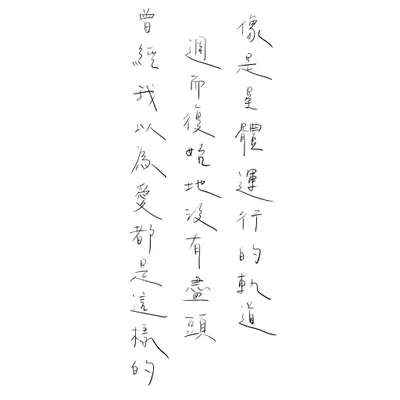 像是星體運行的軌道
週而復始地沒有盡頭
曾經我以為愛都是這樣的